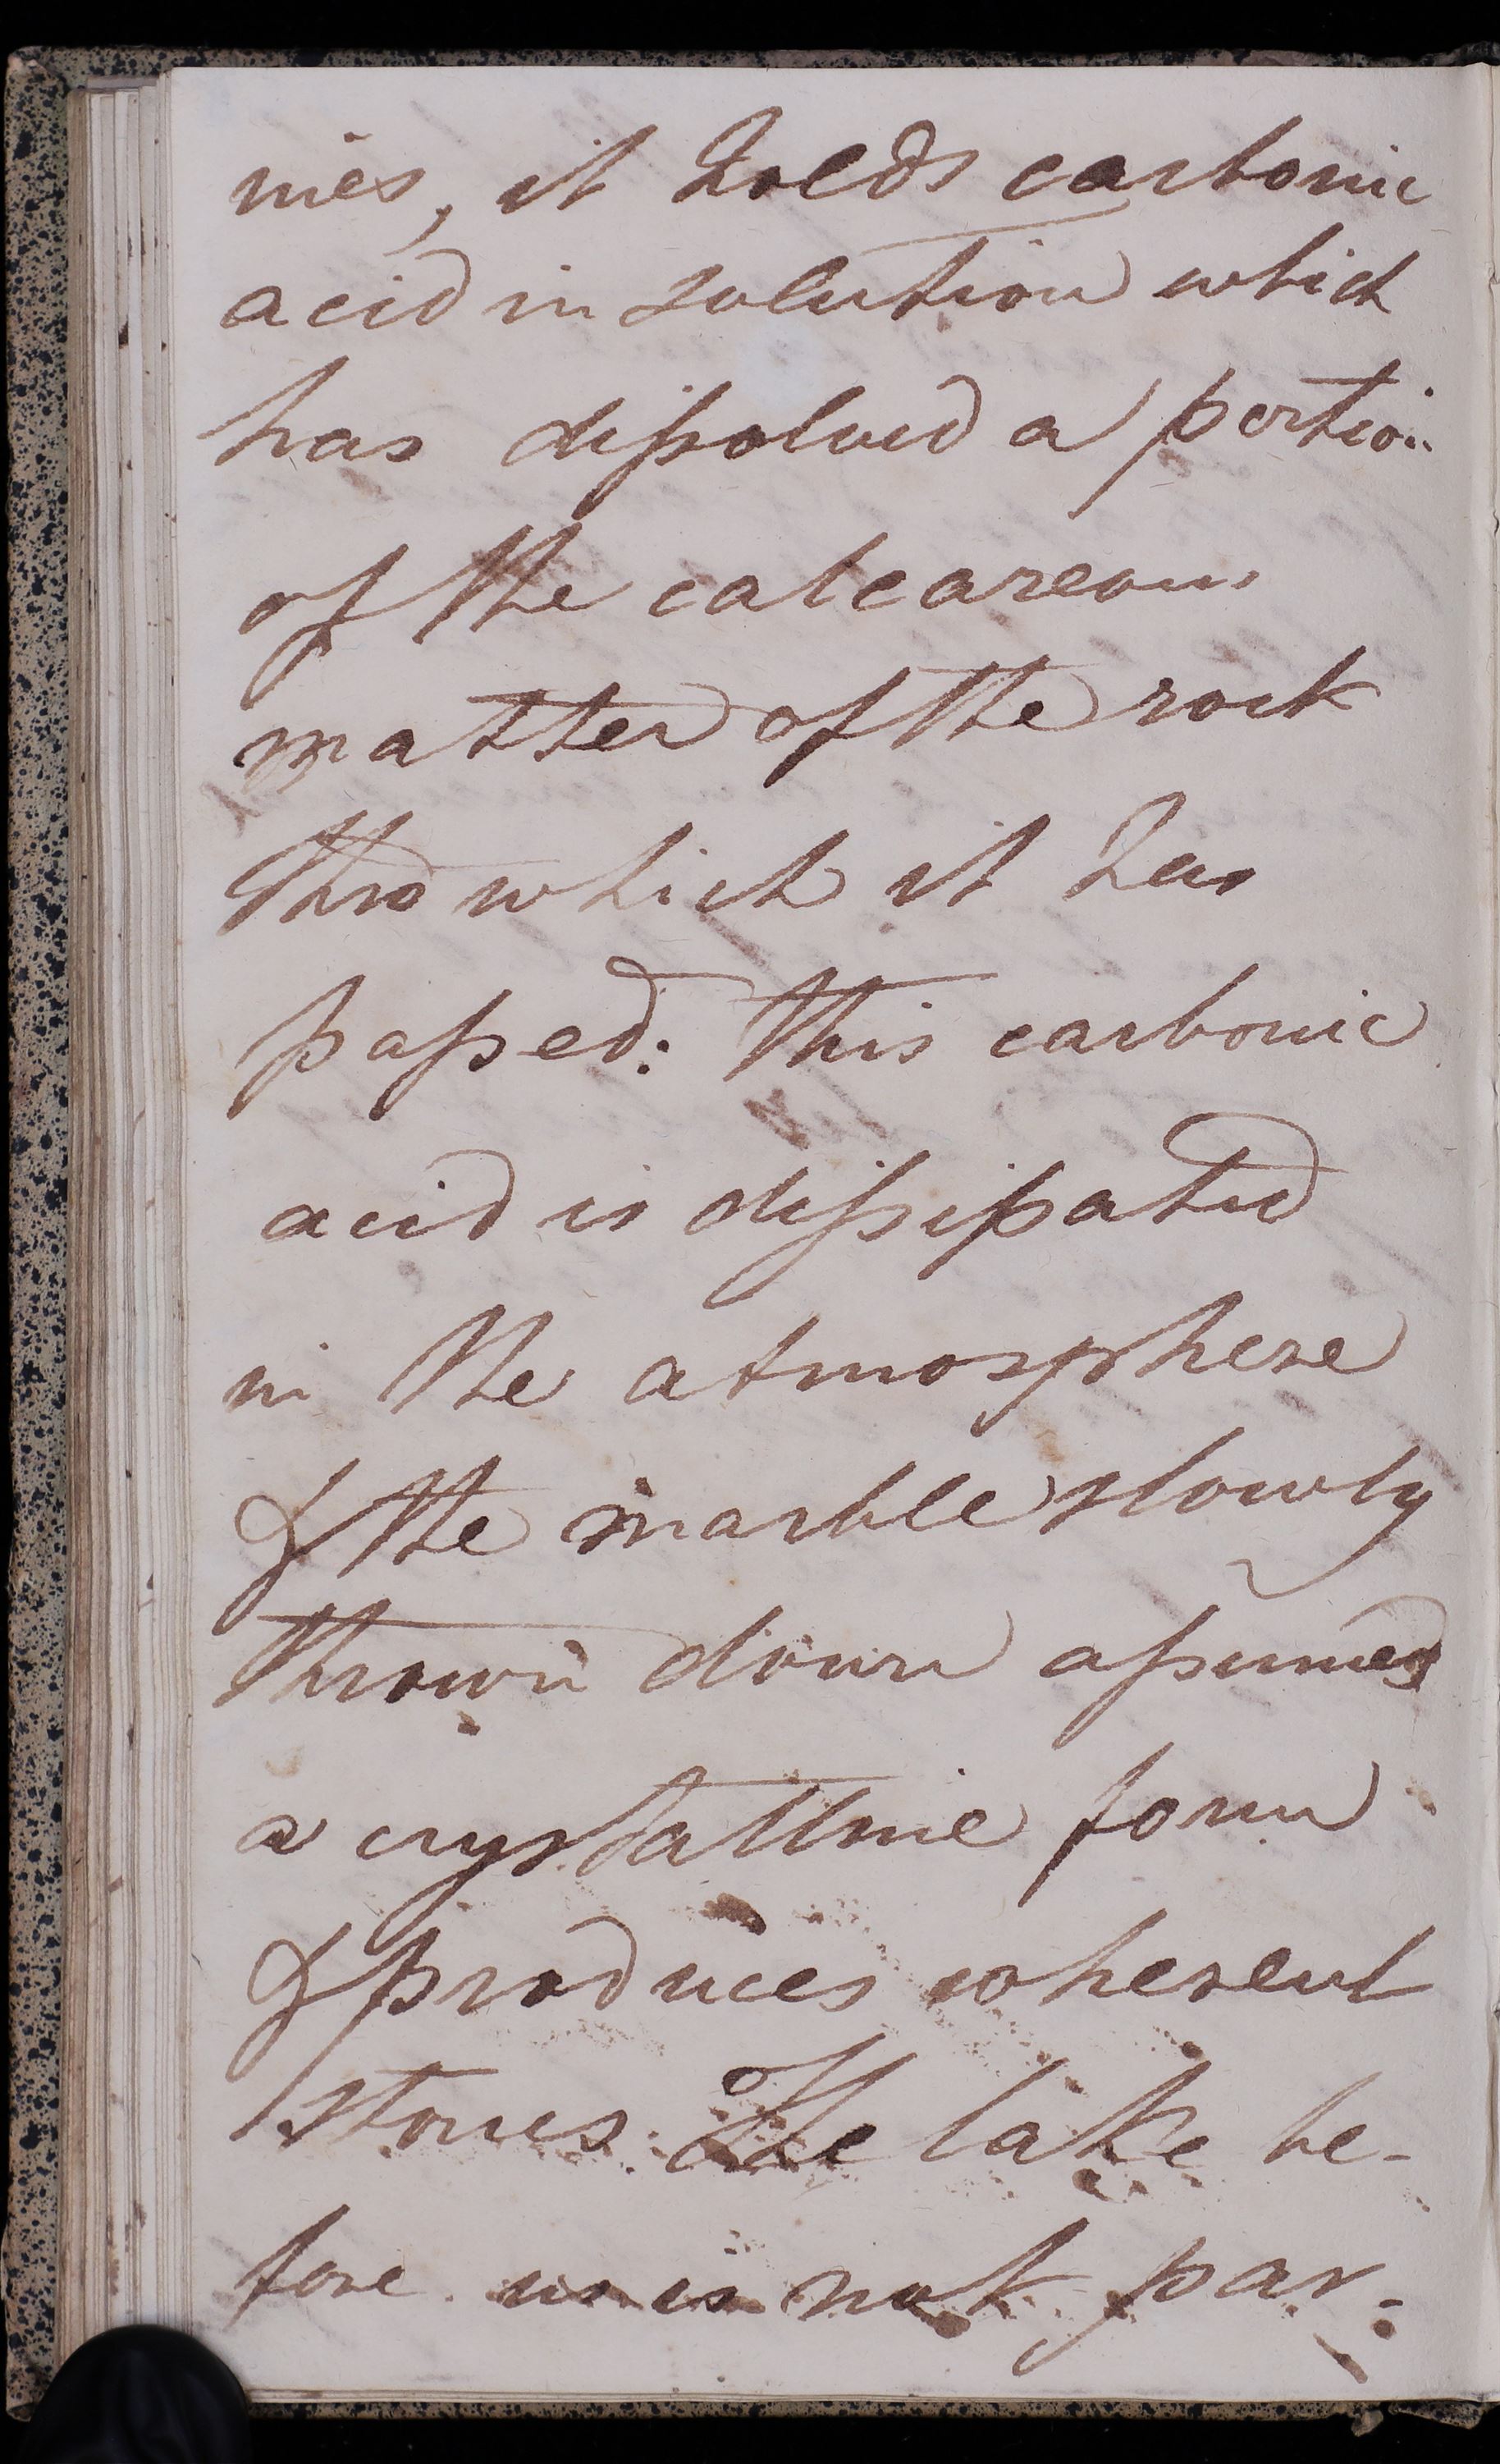 nies, it holds carbonic
acid in solution which
has dissolved a portion
of the calcareous
matter of the rock
thro which it has
passed: This carbonic
acid is dissipated
in the atmosphere
& the marble slowly
thrown down assumes
a crystalline form
& produces coherent
stones. The lake be-
fore us is not par-